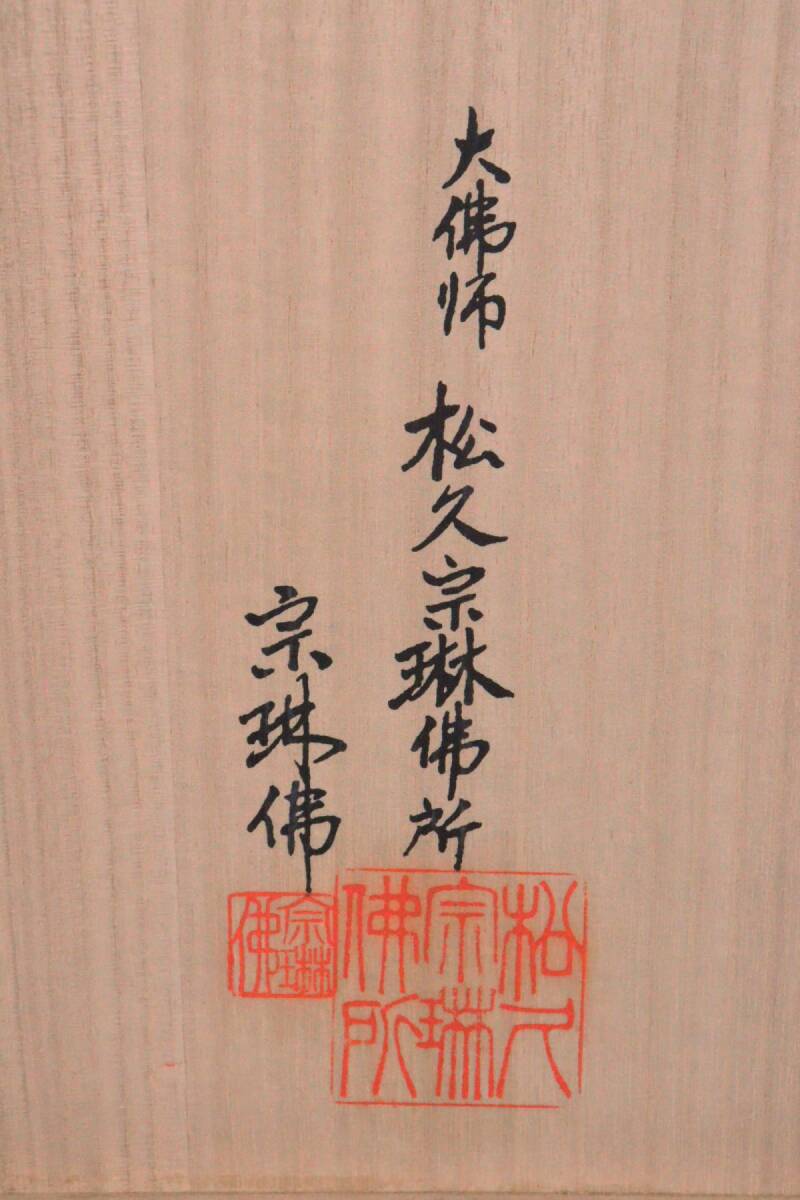 大佛师 松久宗琳佛所
宗琳佛
松久宗琳佛所
宗琳佛